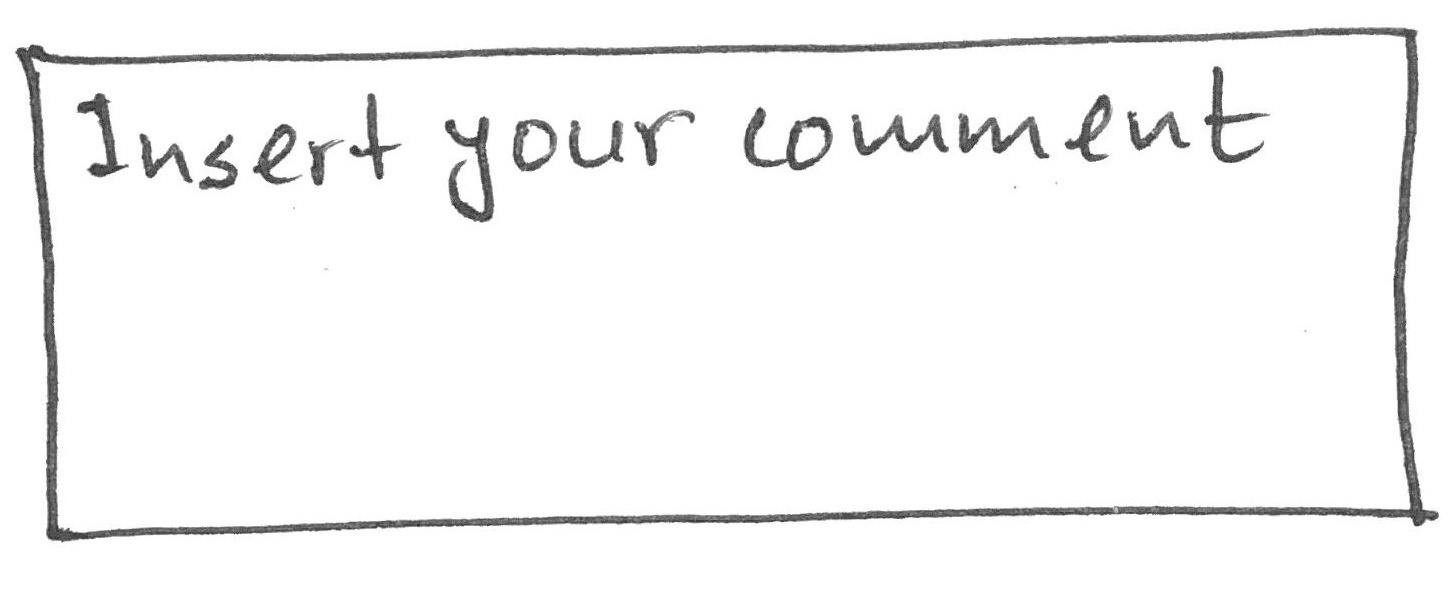 Insert your comment